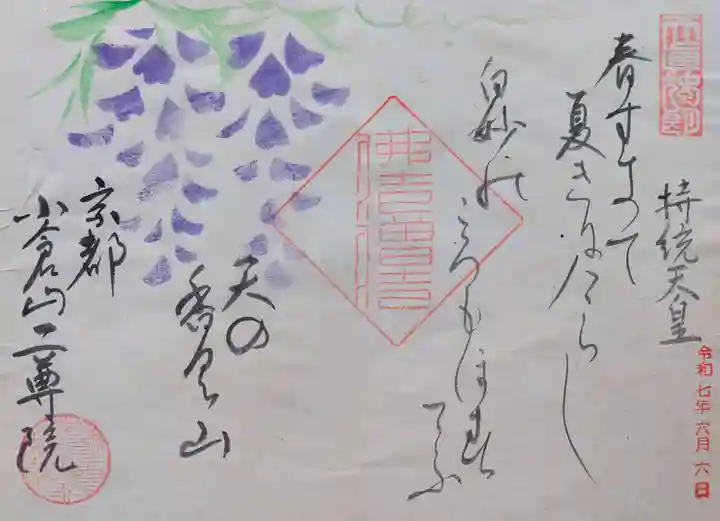 持統天皇
春すきて
夏きにけらし
白妙の
ころもほす
てふ
天の
香具山
京都
小倉山二尊院
令和七年六月六日